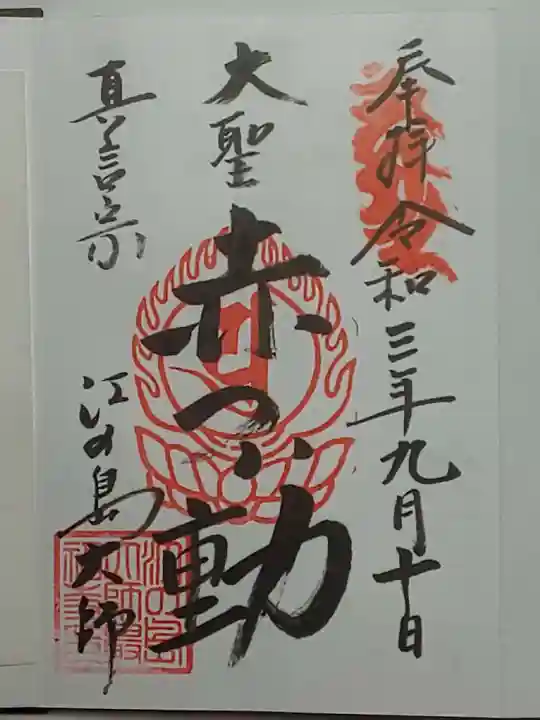 奉拝 令和三年九月十日
大聖
赤ふ動
真言宗
江の島大師